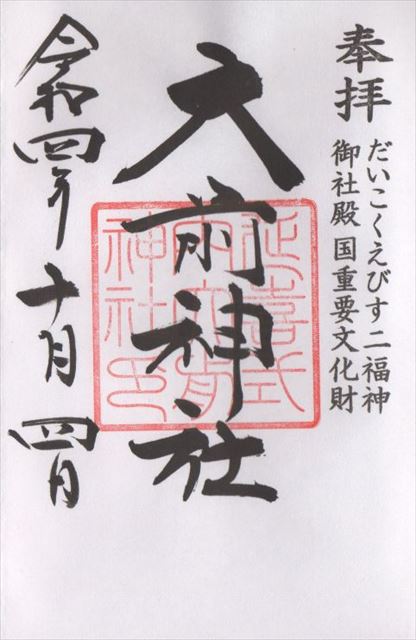 奉拝
だいこくえびす二福神
御社殿国重要文化財
大前神社
延喜式
内大前
神社印
令和四年十月四日